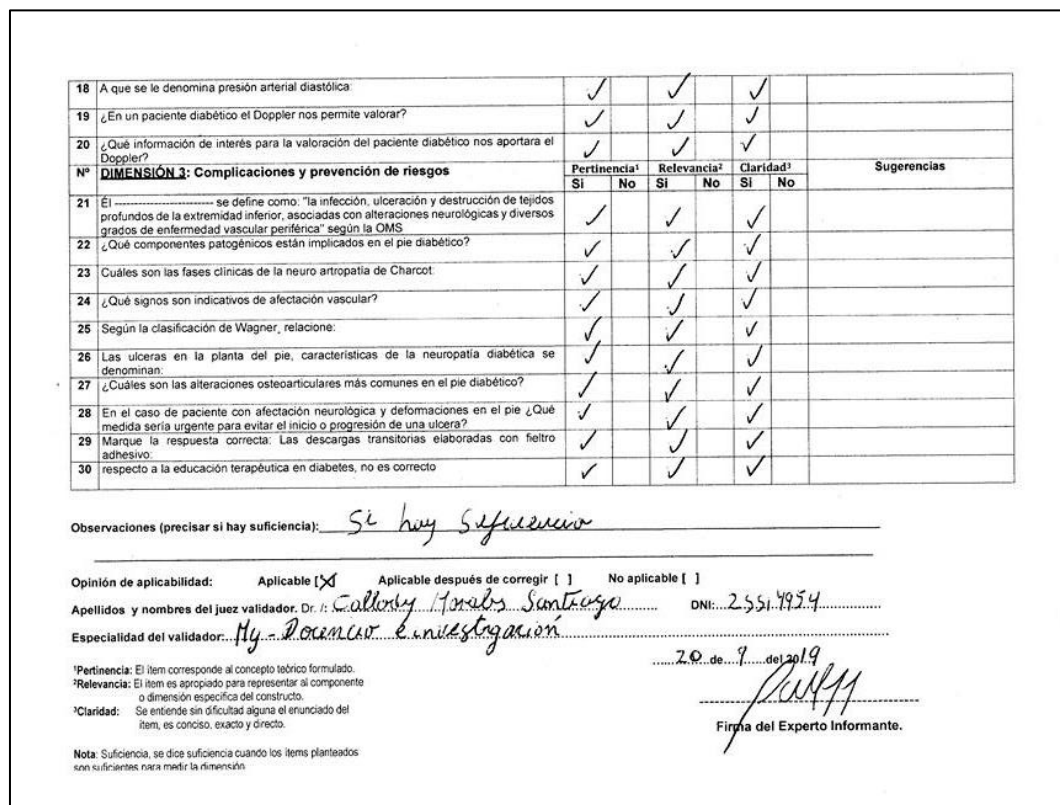 18 A que se le denomina presión arterial diastólica: ✓ ✓ ✓
19 ¿En un paciente diabético el Doppler nos permite valorar? ✓ ✓ ✓
20 ¿Qué información de interés para la valoración del paciente diabético nos aportara el
Doppler? ✓ ✓ ✓
Nº DIMENSIÓN 3: Complicaciones y prevención de riesgos Pertinencia¹ Relevancia² Claridad³ Sugerencias
Si No Si No Si No
21 Él ------------------------- se define como: "la infección, ulceración y destrucción de tejidos
profundos de la extremidad inferior, asociadas con alteraciones neurológicas y diversos
grados de enfermedad vascular periférica" según la OMS ✓ ✓ ✓
22 ¿Qué componentes patogénicos están implicados en el pie diabético? ✓ ✓ ✓
23 Cuáles son las fases clínicas de la neuro artropatía de Charcot: ✓ ✓ ✓
24 ¿Qué signos son indicativos de afectación vascular? ✓ ✓ ✓
25 Según la clasificación de Wagner, relacione: ✓ ✓ ✓
26 Las ulceras en la planta del pie, características de la neuropatía diabética se
denominan: ✓ ✓ ✓
27 ¿Cuáles son las alteraciones osteoarticulares más comunes en el pie diabético? ✓ ✓ ✓
28 En el caso de paciente con afectación neurológica y deformaciones en el pie ¿Qué
medida sería urgente para evitar el inicio o progresión de una ulcera? ✓ ✓ ✓
29 Marque la respuesta correcta: Las descargas transitorias elaboradas con fieltro
adhesivo: ✓ ✓ ✓
30 respecto a la educación terapéutica en diabetes, no es correcto ✓ ✓ ✓
Observaciones (precisar si hay suficiencia): Si hay suficiencia
Opinión de aplicabilidad: Aplicable [X] Aplicable después de corregir [ ] No aplicable [ ]
Apellidos y nombres del juez validador. Dr. /: Morales Santiago DNI:
Especialidad del validador: Mg - Docencia e investigación
20 de 9 del 2019
¹Pertinencia: El ítem corresponde al concepto teórico formulado.
²Relevancia: El ítem es apropiado para representar al componente
o dimensión específica del constructo.
³Claridad: Se entiende sin dificultad alguna el enunciado del
ítem, es conciso, exacto y directo.
Firma del Experto Informante.
Nota: Suficiencia, se dice suficiencia cuando los ítems planteados
son suficientes para medir la dimensión